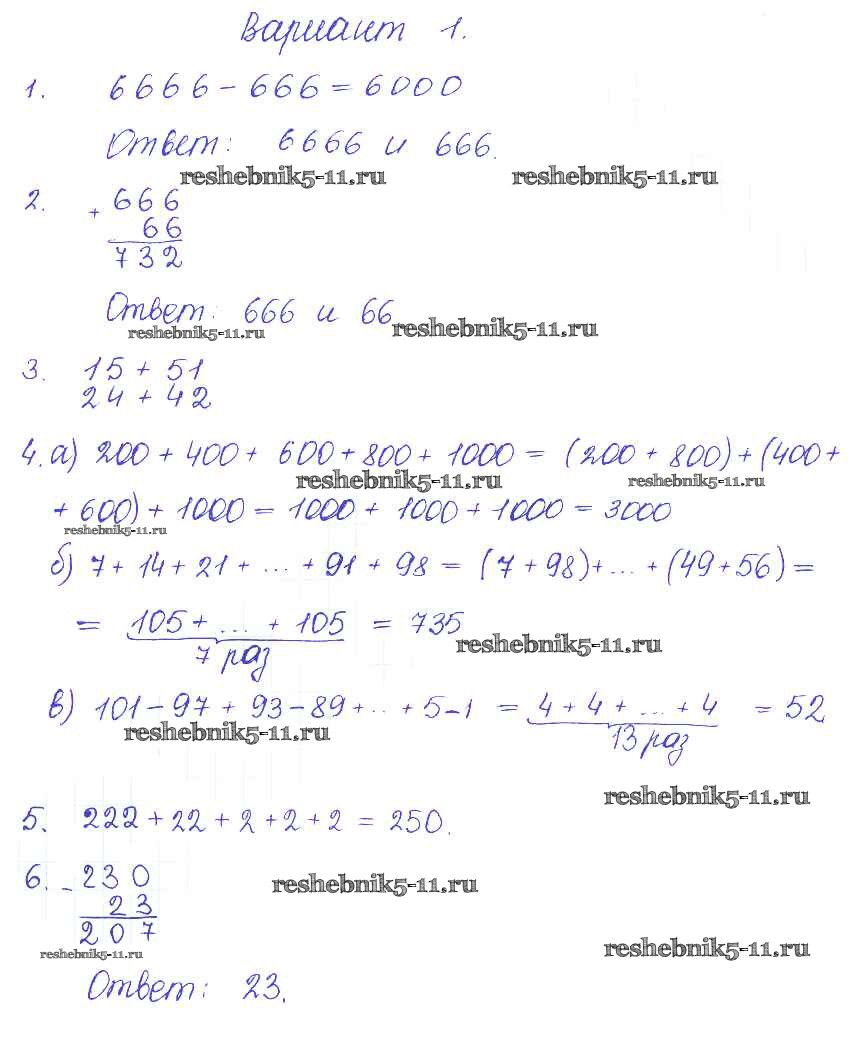 Вариант 1.
1. 6666 - 666 = 6000
Ответ: 6666 и 666.
reshebnik5-11.ru reshebnik5-11.ru
2. + 666
66
732
Ответ: 666 и 66
reshebnik5-11.ru reshebnik5-11.ru
3. 15 + 51
24 + 42
4. а) 200 + 400 + 600 + 800 + 1000 = (200 + 800) + (400 +
reshebnik5-11.ru reshebnik5-11.ru
+ 600) + 1000 = 1000 + 1000 + 1000 = 3000
reshebnik5-11.ru
б) 7 + 14 + 21 + ... + 91 + 98 = (7 + 98) + ... + (49 + 56) =
= 105 + ... + 105 = 735
reshebnik5-11.ru
7 раз
в) 101 - 97 + 93 - 89 + .. + 5 - 1 = 4 + 4 + ... + 4 = 52
reshebnik5-11.ru
13 раз
reshebnik5-11.ru
5. 222 + 22 + 2 + 2 + 2 = 250.
6. - 230
reshebnik5-11.ru
23
207
reshebnik5-11.ru reshebnik5-11.ru
Ответ: 23.